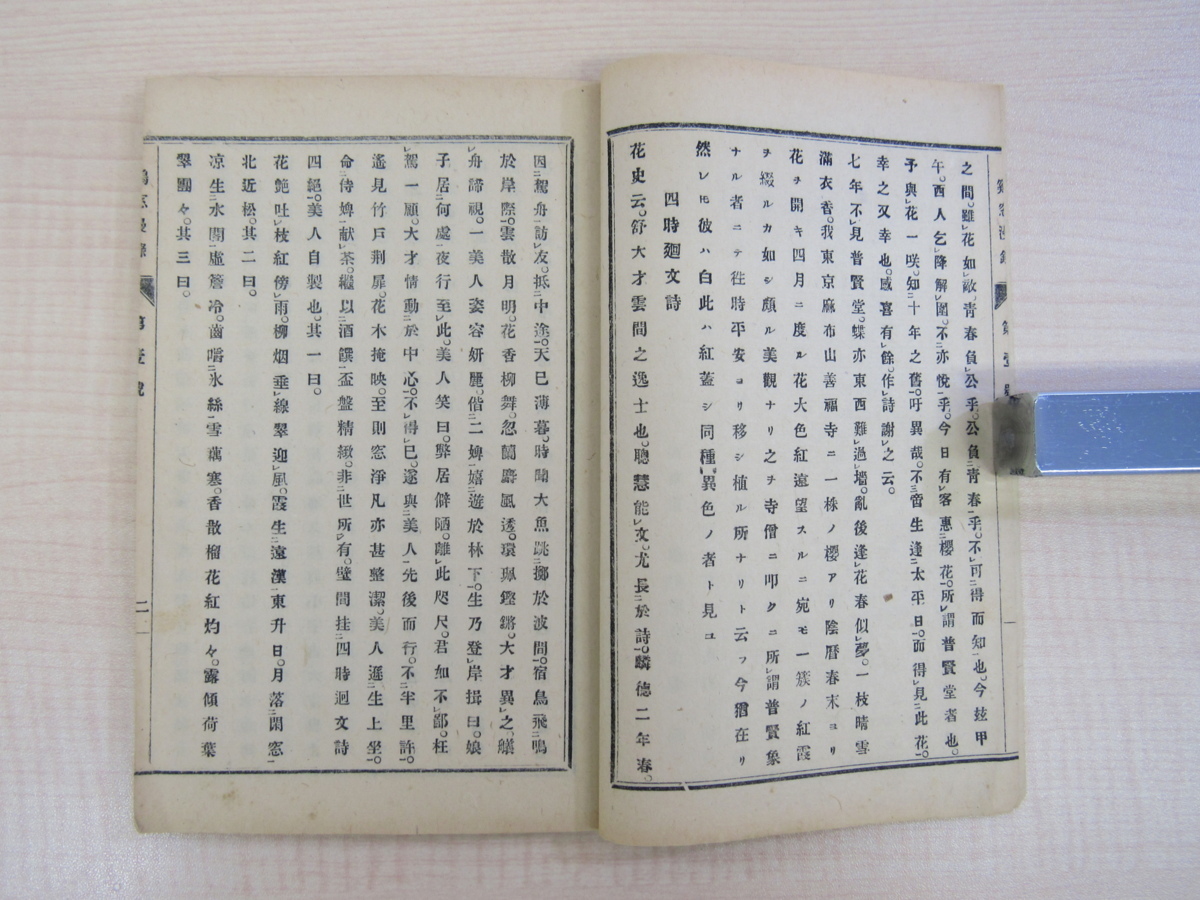 之間。雖花如敵。青春負公乎。公負青春乎。不可得而知也。今玆甲
午。西人乞降解圍。不亦悅乎。今日有客惠櫻花。所謂普賢堂者也。
予與花一咲。知十年之舊。吁異哉。不啻生逢太平日。而得見此花。
幸之又幸也。感喜有餘。作詩謝之云。
七年不見普賢堂。蝶亦東西難過墻。亂後逢花春似夢。一枝晴雪
滿衣香。我東京麻布山善福寺ニ一株ノ櫻アリ陰曆春末ヨリ
花ヲ開キ四月ニ度ル花大色紅遠望スルニ宛モ一簇ノ紅霞
ヲ綴ルカ如シ頗ル美觀ナリ之ヲ寺僧ニ叩クニ所謂普賢象
ナル者ニテ徃時平安ヨリ移シ植ル所ナリト云フ今猶在リ
然レモ彼ハ白此ハ紅蓋シ同種異色ノ者ト見ユ
四時廻文詩
花史云。舒大才雲間之逸士也。聰慧能文。尤長於詩。麟德二年春。
因駕舟訪友。抵中途。天已薄暮。時聞大魚跳擲於波間。宿鳥飛鳴
於岸際。雲散月明。花香柳舞。忽蘭麝風透。環珮鏗鏘。大才異之。艤
舟諦視。一美人姿容妍麗。偕二婢嬉遊於林下。生乃登岸揖曰。娘
子居何處。夜行至此。美人笑曰。弊居僻陋。離此咫尺。君如不鄙。枉
駕一顧。大才情動於中心。不得已。遂與美人先後而行。不半里許。
遙見竹戶荆扉。花木掩映。至則窓淨凡亦甚整潔。美人遜生上坐。
命侍婢献茶。繼以酒饌。盃盤精緻。非世所有。壁間挂四時迴文詩
四絕。美人自製也。其一曰。
花艶吐枝紅傍雨。柳烟垂線翠迎風。霞生遠漢東升日。月落閑窓
北近松。其二曰。
凉生水閣虛簷冷。齒嚼氷絲雪藕寒。香散榴花紅灼々。露傾荷葉
翠團々。其三曰。
第壹號
二